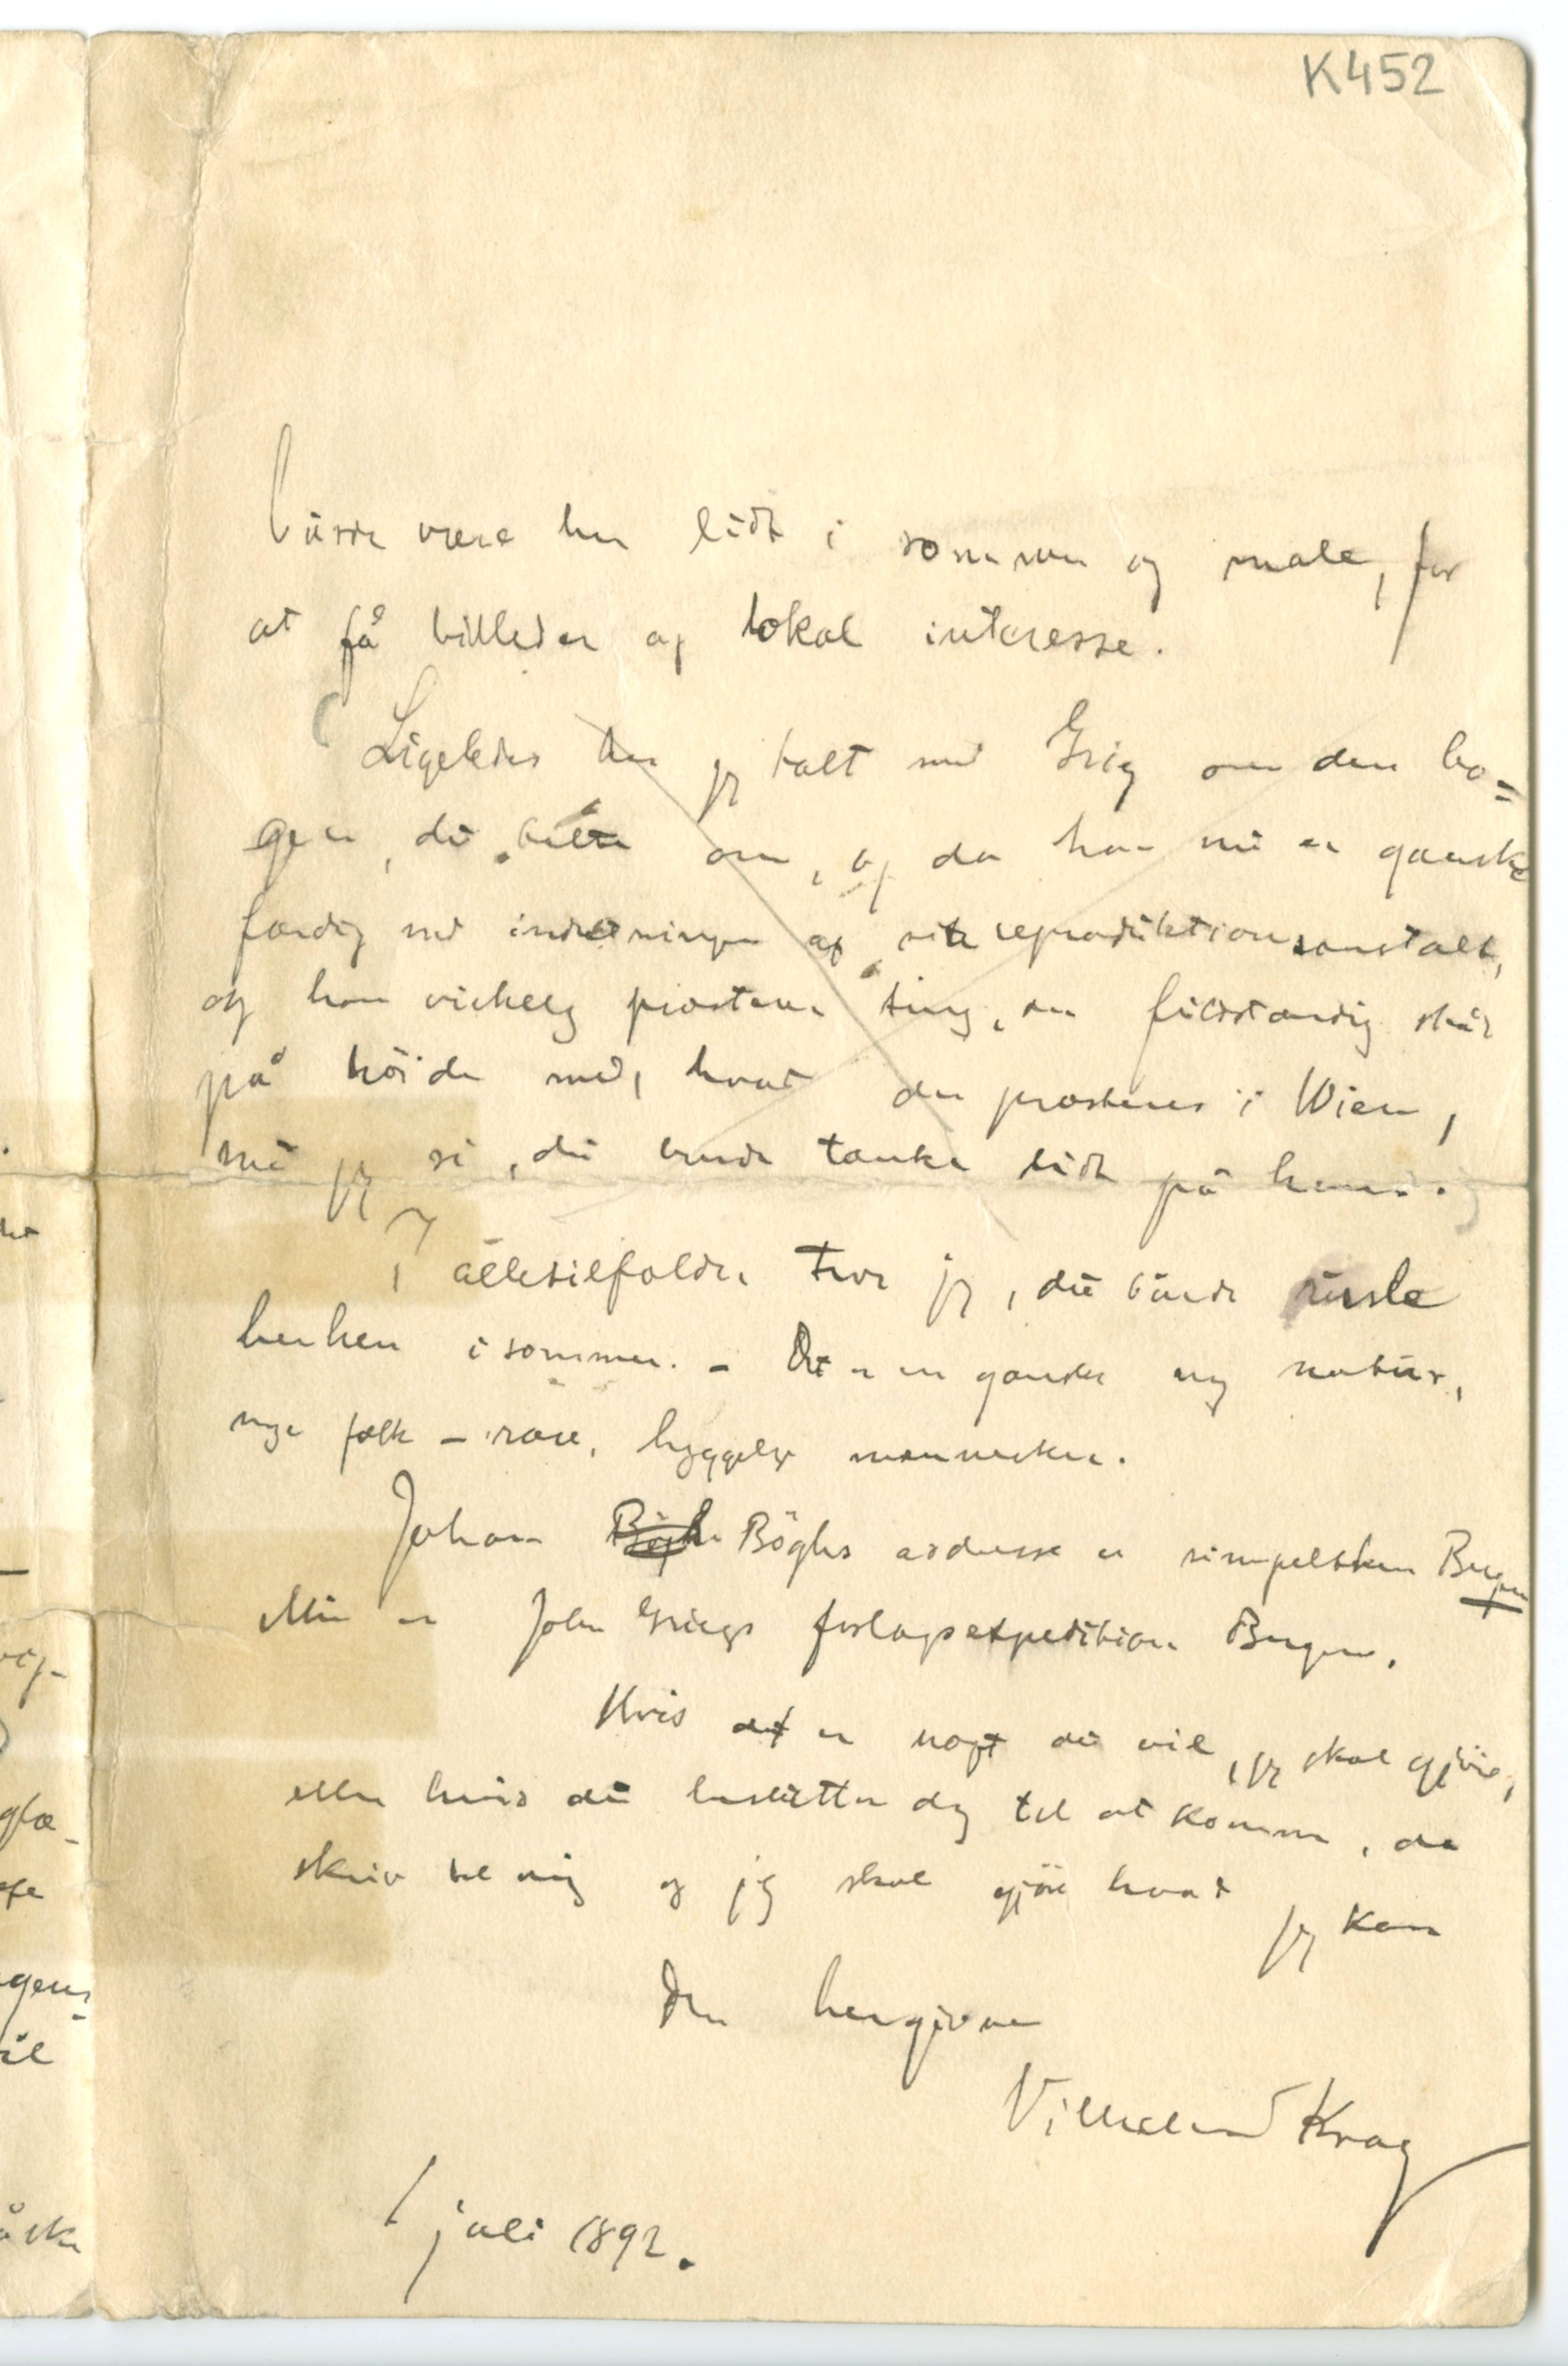 K452
burde være her lidt i sommer og male, for
at få billeder af lokal interesse.
Ligeledes har jeg talt med Grieg om den bo=
gen, du talte om, og da han nu er ganske
færdig med indretningen af sit reproduktionsanstalt,
og han virkelig præsterer ting, som fuldstændig står
på høide med, hvad der præsteres i Wien,
må jeg si, du burde tænke lidt på ham.
I alletilfælde tror jeg, du burde rusle
herhen i sommer. – Det er en ganske ny natur,
nye folk – rare, hyggelige mennesker.
Johan Bögh Böghs addresse er simpelthen Bergen
Min er John Griegs forlagsexpedition Bergen.
Hvis det er noget du vil, jeg skal gjöre,
eller hvis du beslutter dig til at komme, da
skriv til mig og jeg skal gjöre hvad jeg kan
Din hengivne
Vilhelm Krag
1 juli 1892.